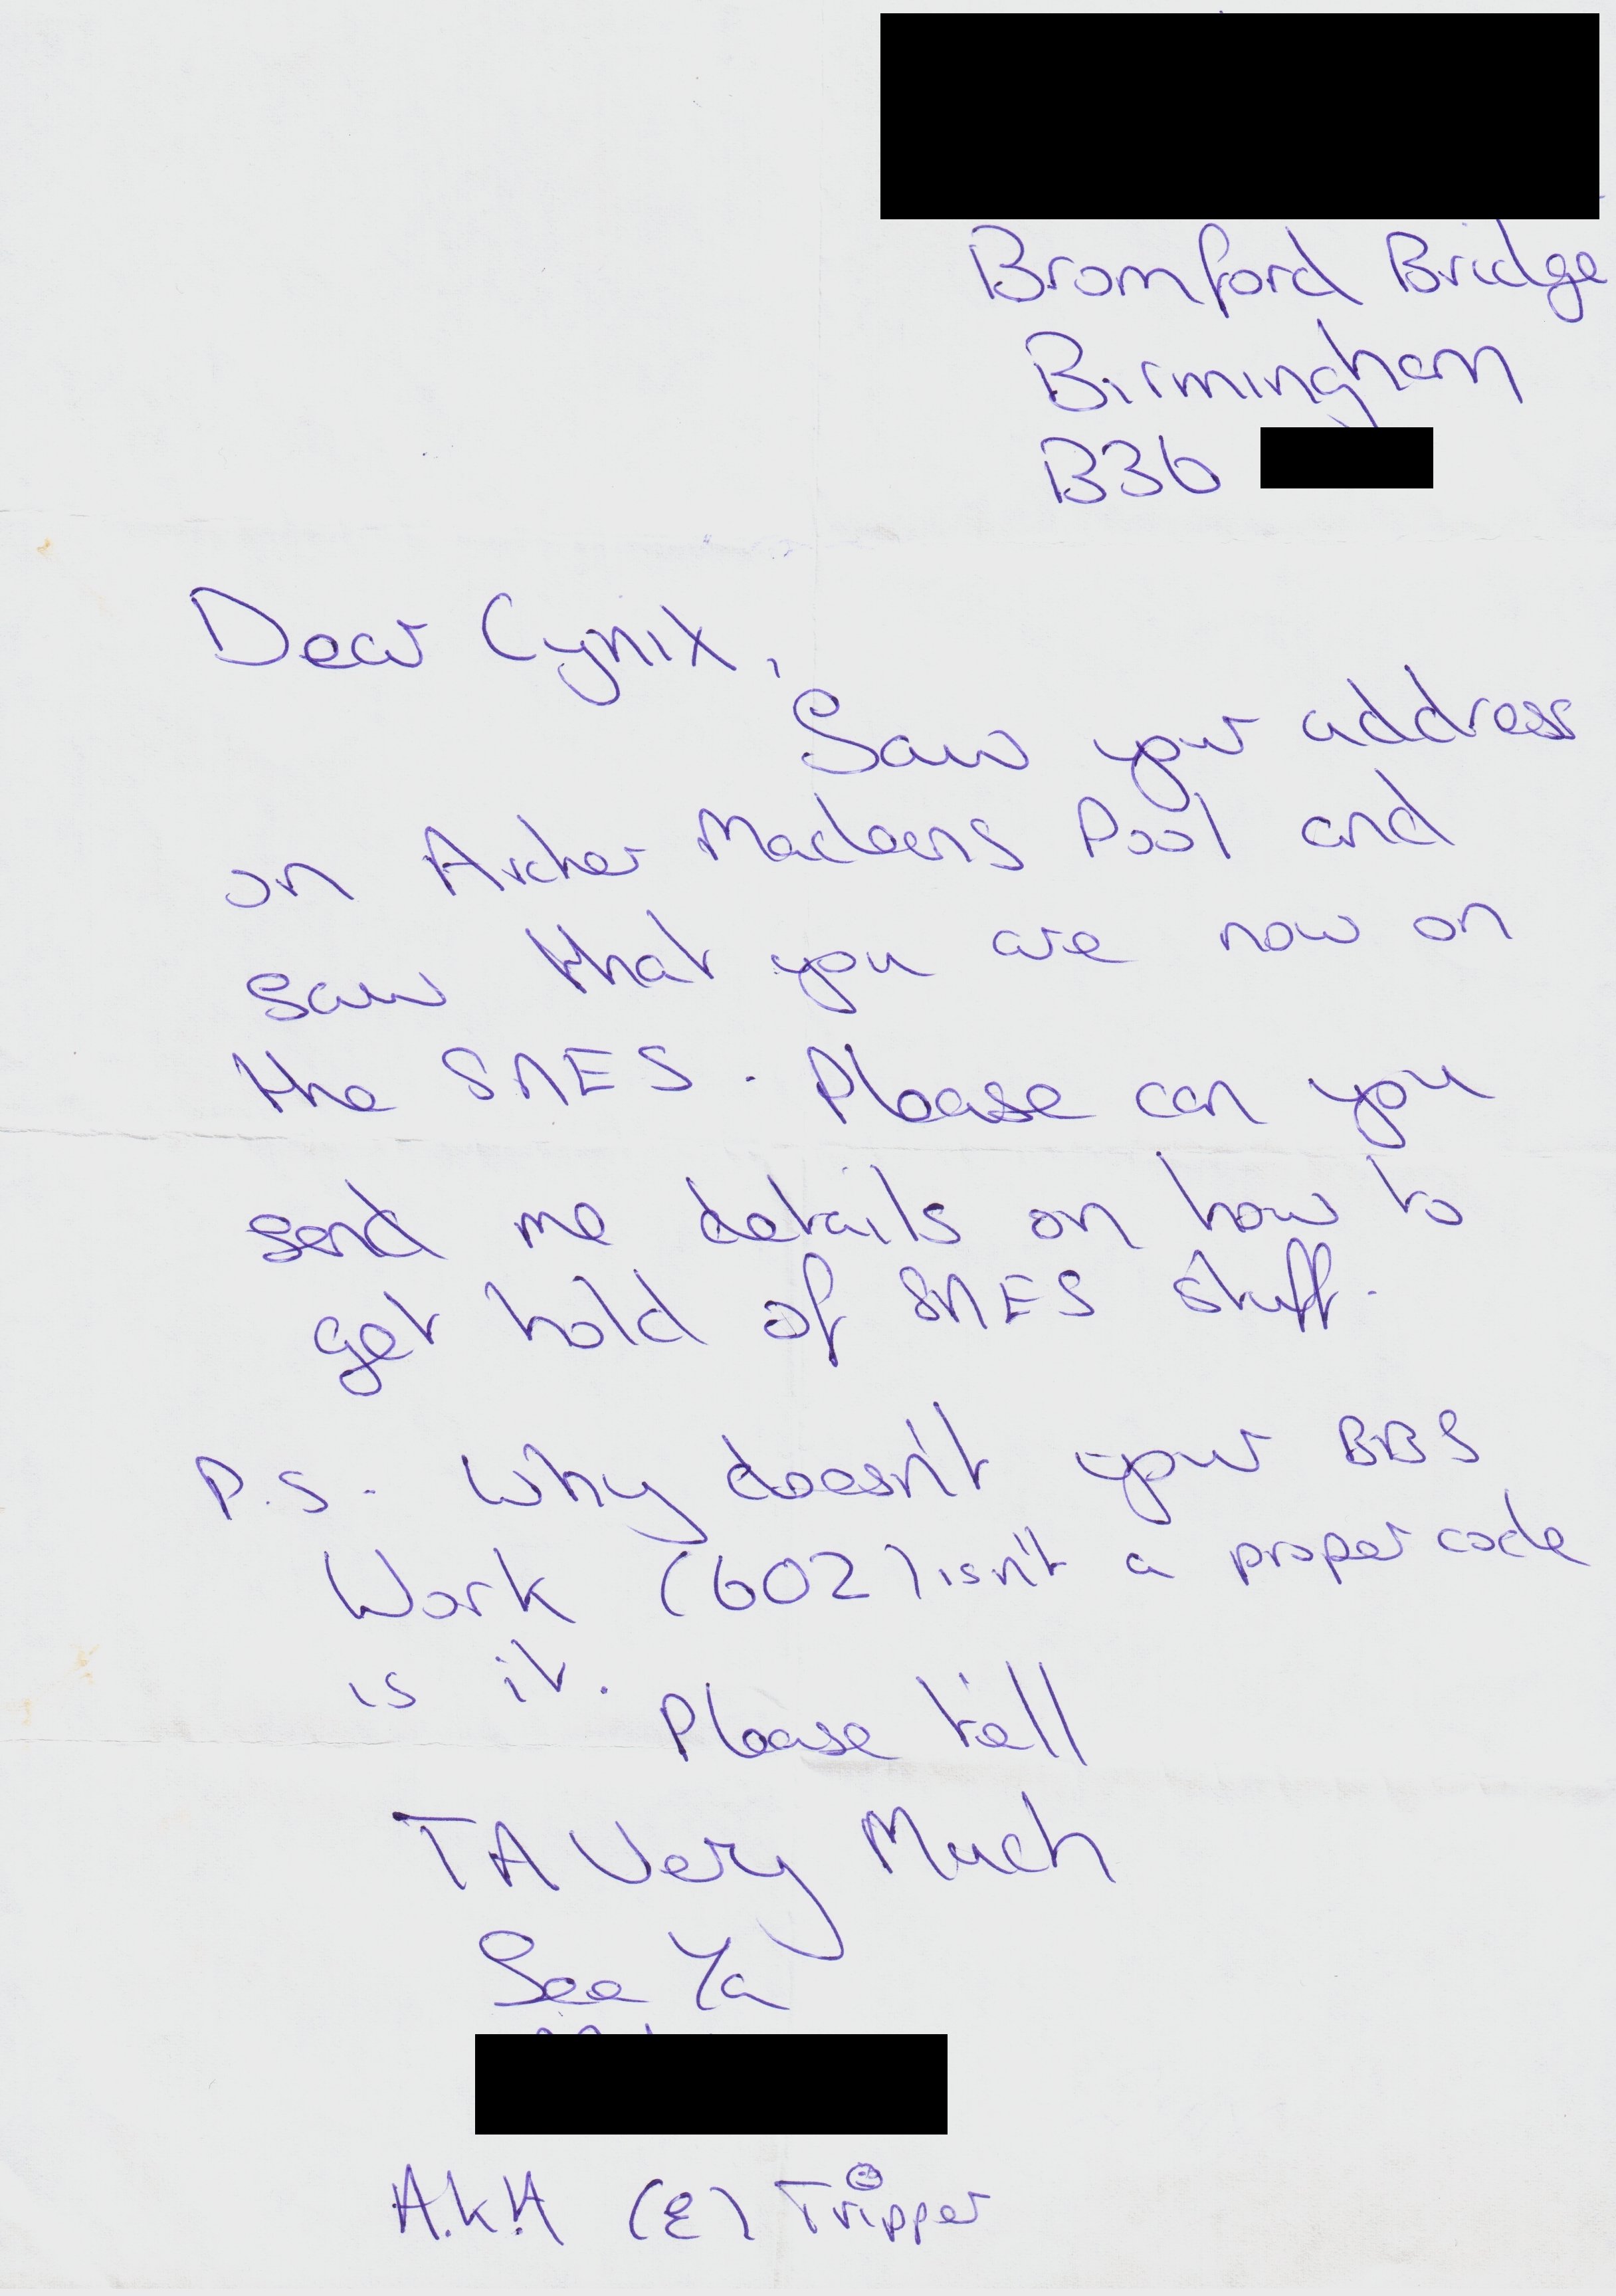 Bromford Bridge
Birmingham
B36
Dear Cynix,
Saw your address
on Archer Macleens Pool and
saw that you are now on
the SNES. Please can you
send me details on how to
get hold of SNES stuff.
P.S. Why doesn't your BBS
Work (602) isn't a proper code
is it.
Please tell
TA Very Much
See Ya
A.K.A (E) Tripper